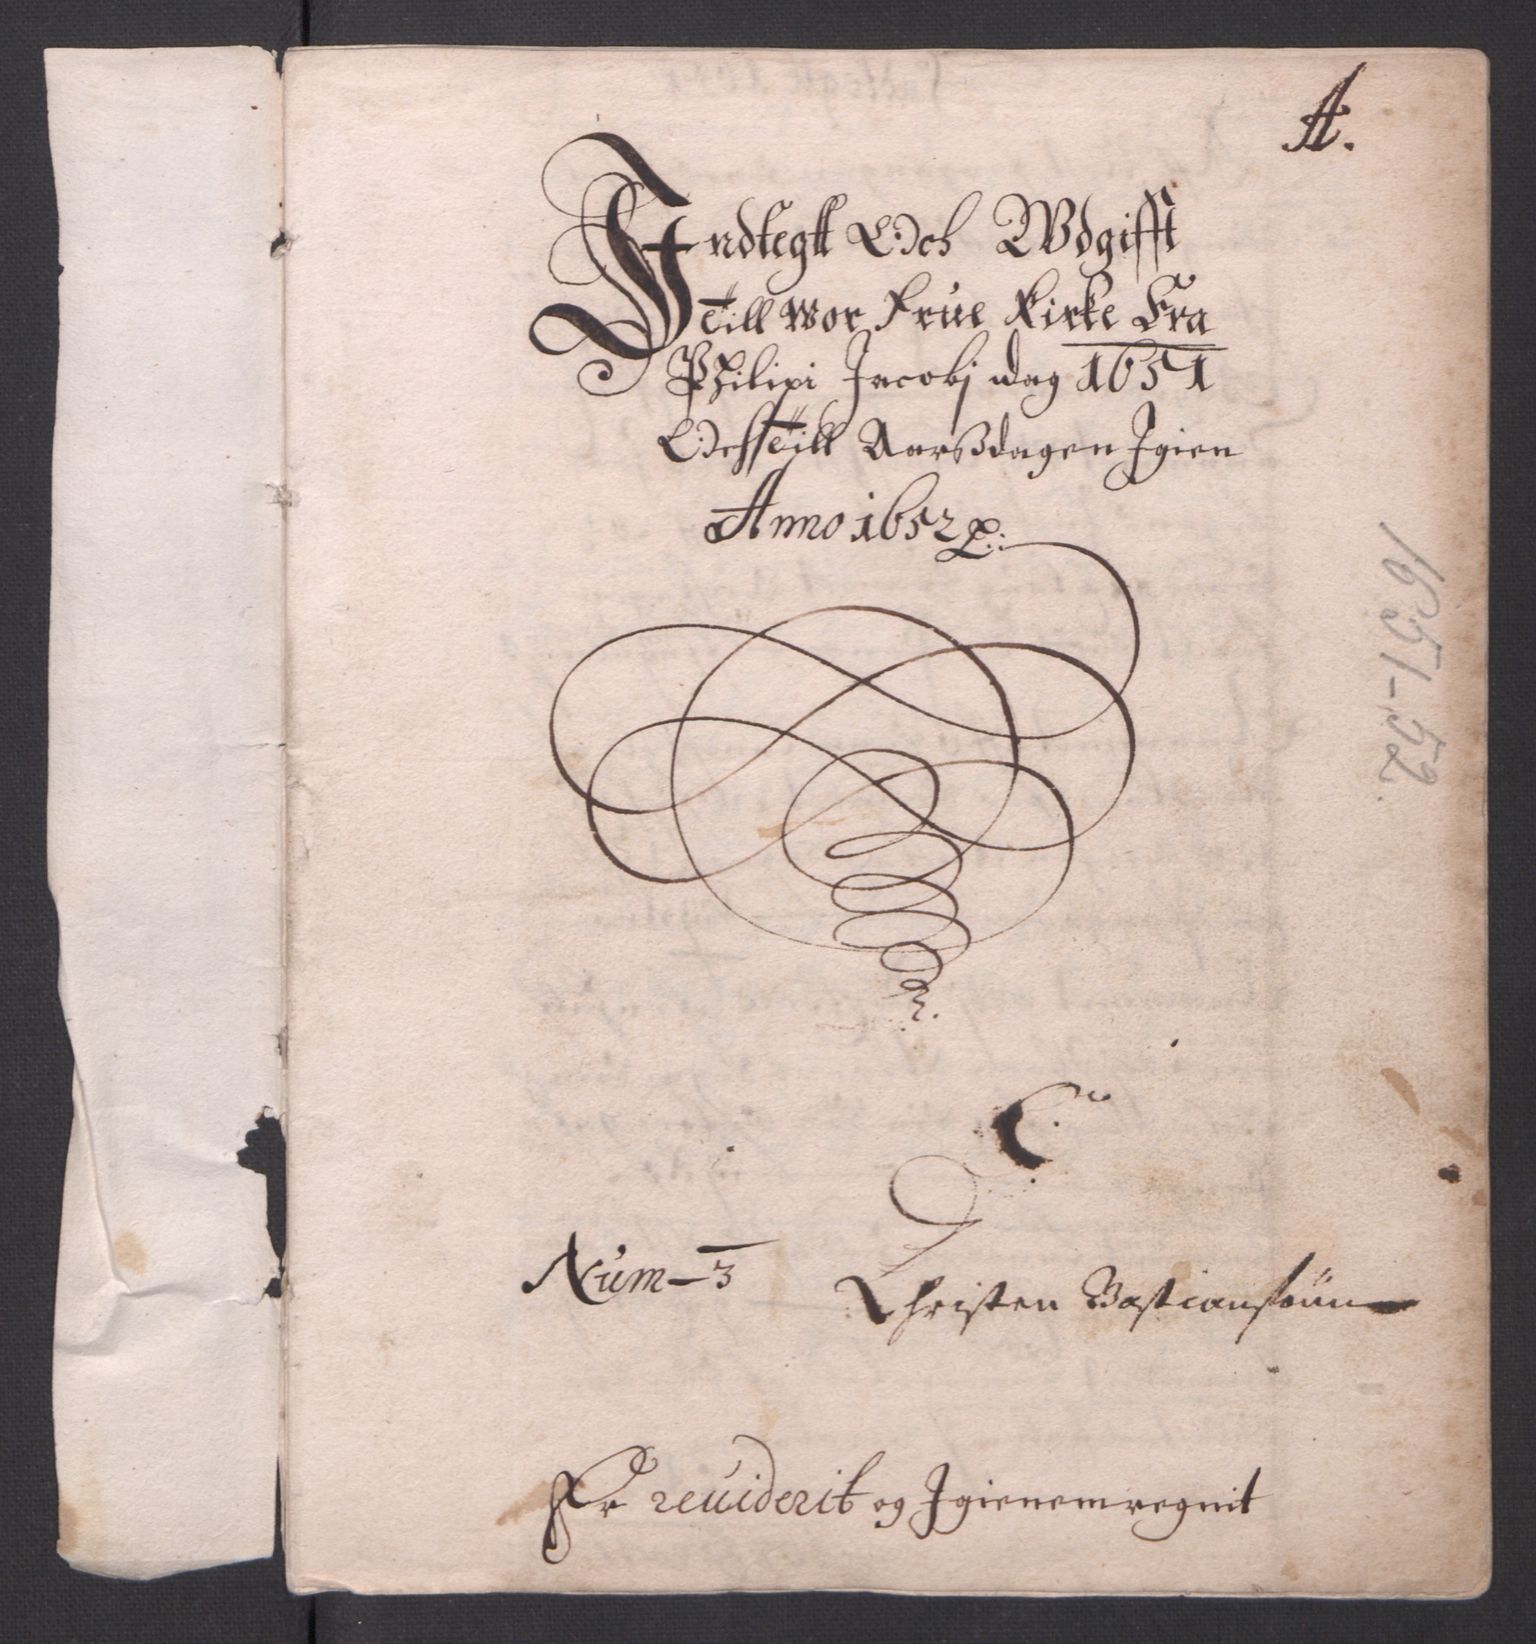 A.
Indtegtt Och Wdgifft
Till wor Frue Kirke Fra
Philipi Jacobj dag 1651
Och Till Aarsdagen Igien
Anno 1652
1651-52.
C
Num- 3
Christen Bastiansøun
Er reuiderit og Igienemregnit